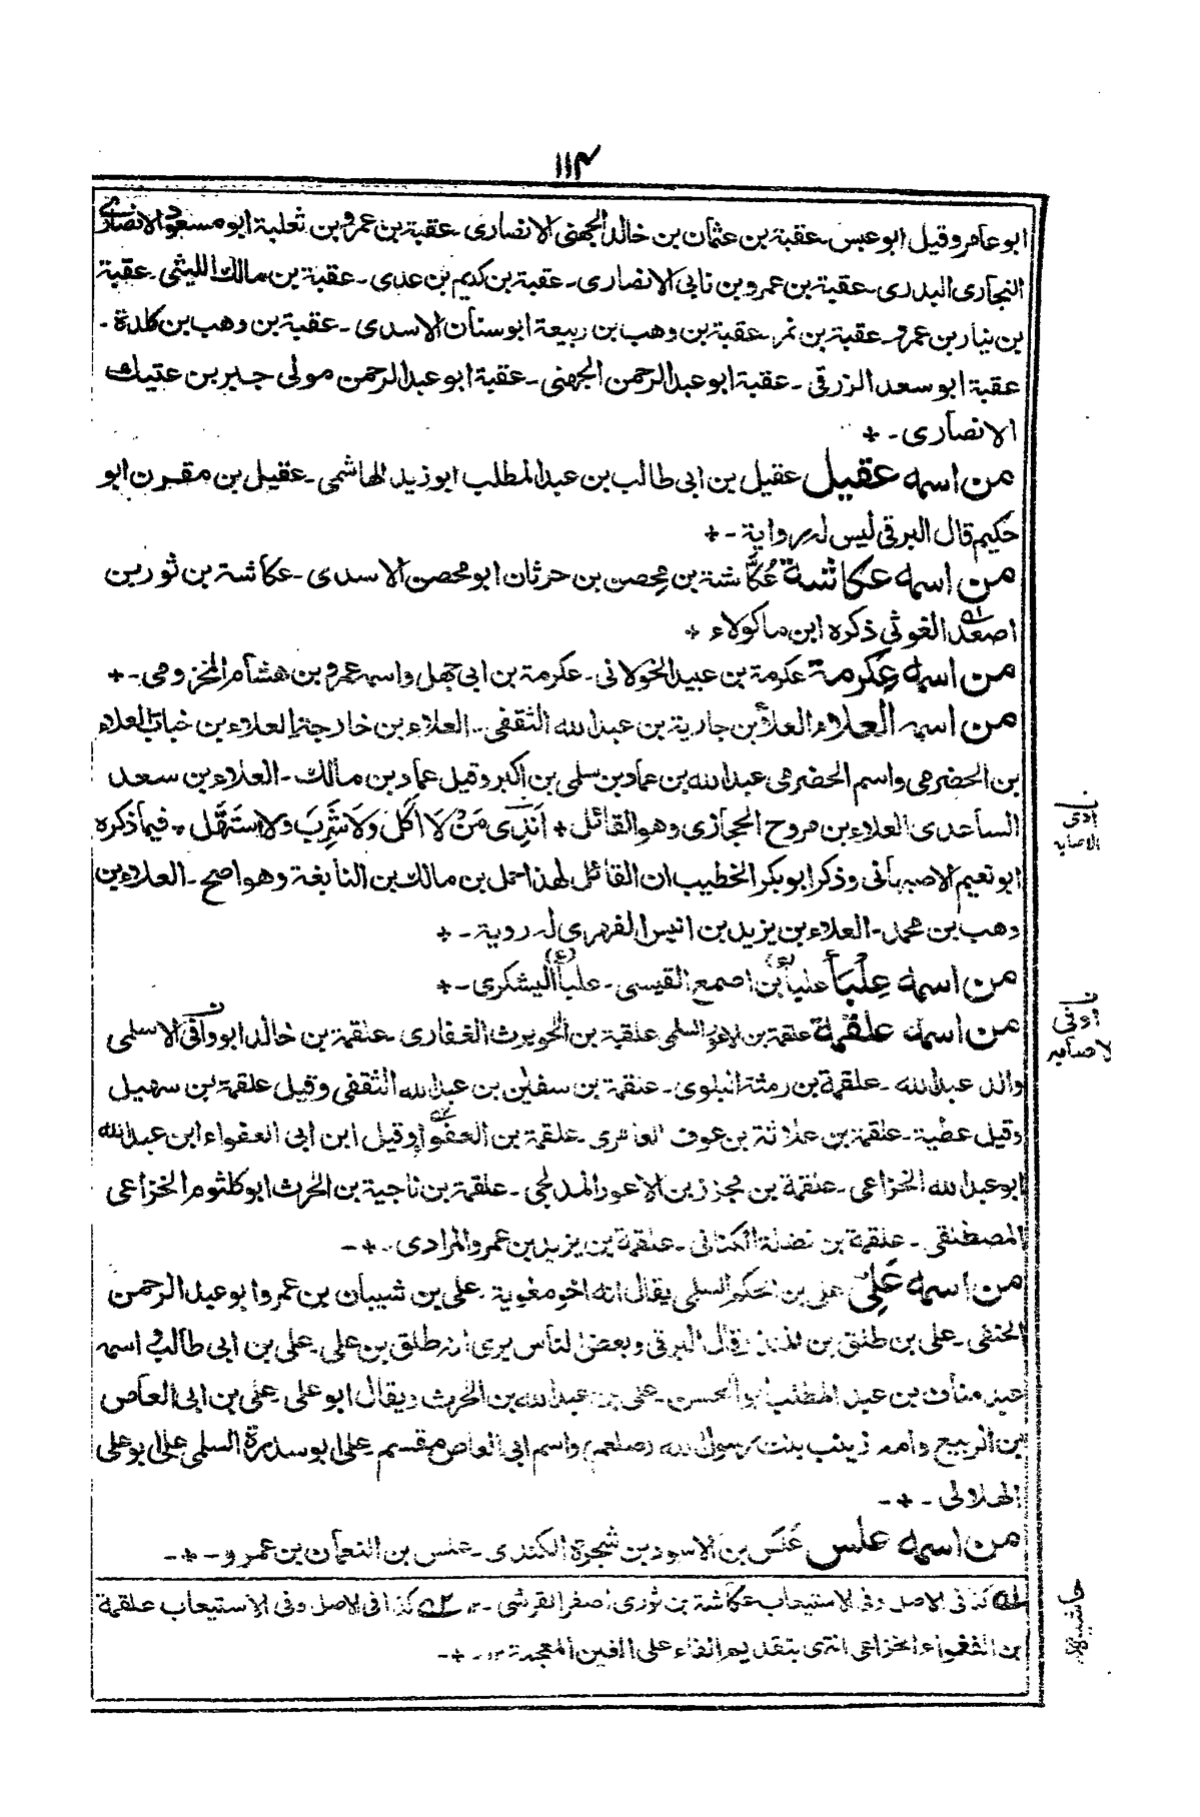 ۱۱۴
ابو عامر وقيل ابو عبس۔ عقبة بن عثمان بن خالد الجهنى الانصارى۔ عقبة بن عمرو بن ثعلبة ابو مسعود الانصارى
النجارى البدرى۔ عقبة بن عمرو بن نابى الانصارى۔ عقبة بن كديم بن عدى۔ عقبة بن مالك الليثى۔ عقبة
بن نيار بن عمرو۔ عقبة بن نمر۔ عقبة بن وهب بن ربيعة ابو سنان الاسدى۔ عقبة بن وهب بن كلدة۔
عقبة ابو سعد الزرقى۔ عقبة ابو عبد الرحمن الجهنى۔ عقبة ابو عبد الرحمن مولى جبر بن عتيك
الانصارى۔ +
من اسمه عقيل عقيل بن ابى طالب بن عبد المطلب ابو زيد الهاشمى۔ عقيل بن مقرن ابو
حكيم قال البرقى ليس له رواية۔ +
من اسمه عكاشة عُكَّاشة بن مِحصن بن حرثان ابو محصن الاسدى۔ عكاشة بن ثور بن
اصعد الغوثي ذكره ابن ماكولاء +
من اسمه عِكرمة عكرمة بن عبيد الخولانى۔ عكرمة بن ابى جهل واسمه عمرو بن هشام المخزومى۔ +
من اسمه العلاء العلاء بن جارية بن عبد الله الثقفى۔ العلاء بن خارجة العلاء بن خباب العلاء
بن الحضرمى واسم الحضرمى عبد الله بن عماد بن سلمى بن اكبر وقيل عماد بن مالك۔ العلاء بن سعد
الساعدى العلاء بن مروح الحجازى وهو القائل + اَنَدِى مَنْ لَا اَكَلَ وَلَا شَرِبَ ولا استَهَّل + فيما ذكره
ابو نعيم الاصبهانى وذكر ابو بكر الخطيب ان القائل لهذا حمل بن مالك بن النابغة وهو اصح۔ العلاء بن
وهب بن محمد۔ العلاء بن يزيد بن انيس الفهرى له روية۔ +
من اسمه عِلْبَاء علباء بن اصمع القيسى۔ علباء اليشكرى۔ +
من اسمه علقمة علقمة بن الاعور السلمى علقمة بن الحويرث الغفارى۔ علقمة بن خالد ابو وافى الاسلمى
والد عبد الله۔ علقمة بن رمثة البلوى۔ علقمة بن سفين بن عبد الله الثقفى وقيل علقمة بن سهيل
وقيل عطية۔ علقمة بن علاثة بن عوف العامرى۔ علقمة بن العفواء وقيل ابن ابى العفواء ابن عبد الله
ابو عبد الله الخزاعى۔ علقمة بن مجزز بن الاعور المدلجى۔ علقمة بن ناجية بن الحرث ابو كلثوم الخزاعى
المصطلقى۔ علقمة بن نضلة الكنانى۔ علقمة بن يزيد بن عمرو المرادى۔ +
من اسمه عَلِىٌّ على بن الحكم السلمى يقال انه اخو معوية۔ على بن شيبان بن عمرو ابو عبد الرحمن
الحنفى۔ على بن طلق بن المنذر قال البرقى وبعض الناس يرى انه طلق بن على۔ على بن ابى طالب واسمه
عبد مناف بن عبد المطلب ابو الحسن۔ على بن عبد الله بن الحرث ويقال ابو على۔ على بن ابى العاص
بن الربيع وامه زينب بنت رسول الله (صلعم) واسم ابى العاص مقسم۔ على ابو سدرة السلمى على ابو على
الهلالى۔ +
من اسمه علس عَلَس بن الاسود بن شجرة الكندى۔ علس بن النعمان بن عمرو۔ +
۵۱ كذا فى الاصل وفى الاستيعاب عكاشة بن ثور بن اصغر القرشى۔ ۱۲ ۵۲ كذا فى الاصل وفى الاستيعاب علقمة
بن الفغواء الخزاعى انتهى بتقديم الفاء على الغين المعجمة ۱۲۔ +